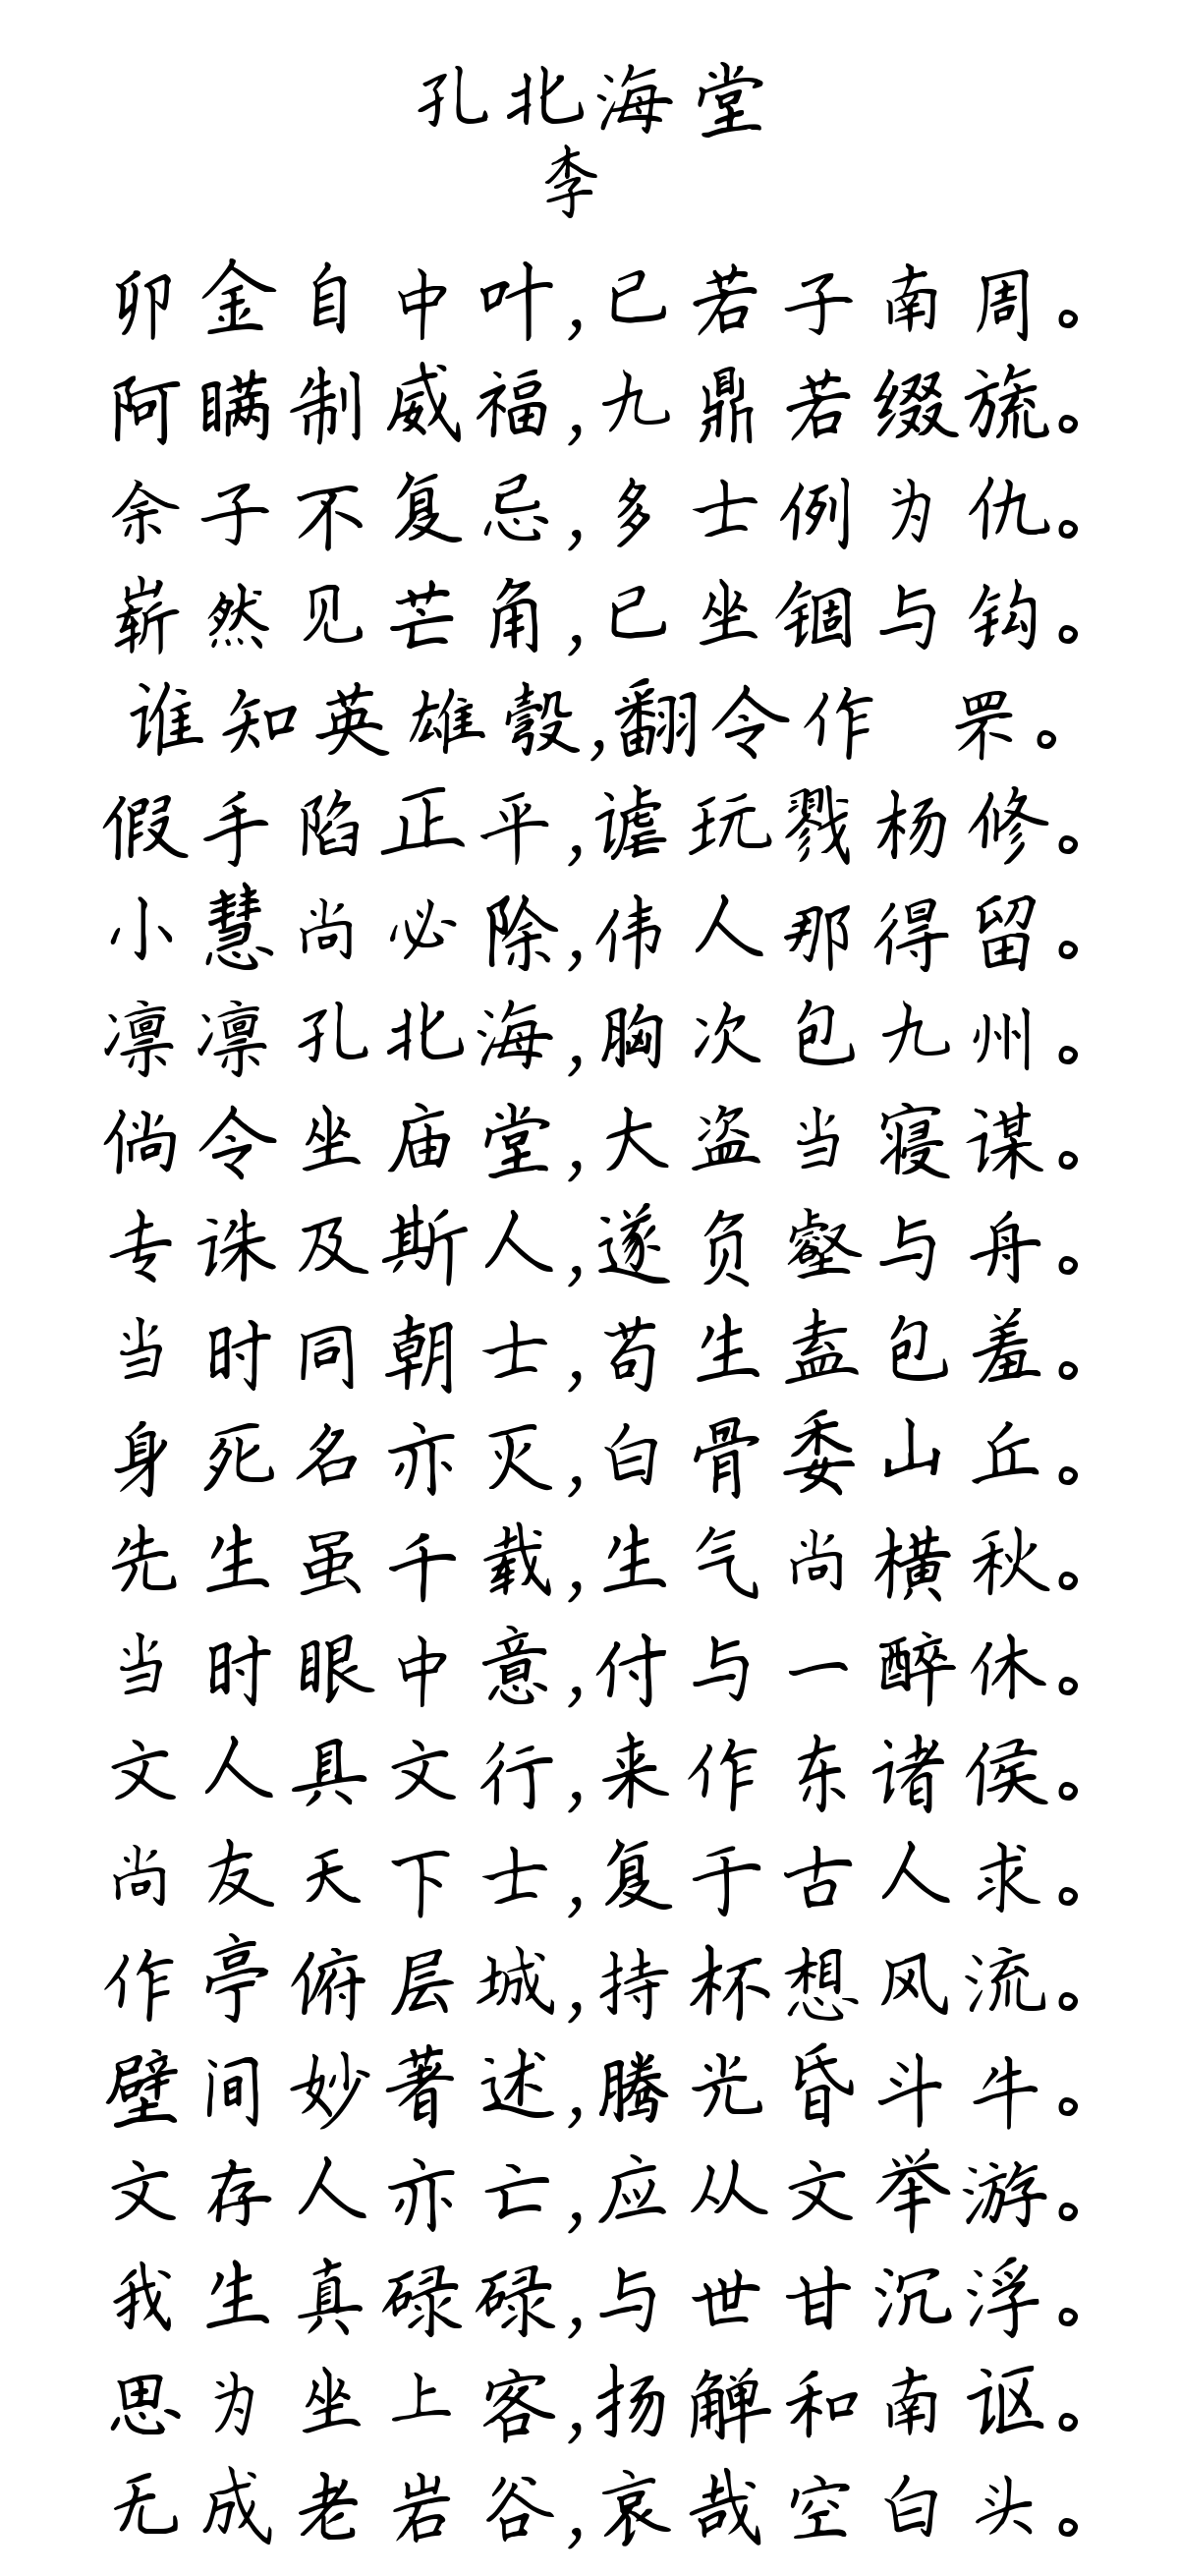 孔北海堂
李
卯金自中叶,已若子南周。
阿瞒制威福,九鼎若缀旒。
余子不复忌,多士例为仇。
崭然见芒角,已坐锢与钩。
谁知英雄彀,翻令作 罘。
假手陷正平,谑玩戮杨修。
小慧尚必除,伟人那得留。
凛凛孔北海,胸次包九州。
倘令坐庙堂,大盗当寝谋。
专诛及斯人,遂负壑与舟。
当时同朝士,苟生盍包羞。
身死名亦灭,白骨委山丘。
先生虽千载,生气尚横秋。
当时眼中意,付与一醉休。
文人具文行,来作东诸侯。
尚友天下士,复于古人求。
作亭俯层城,持杯想风流。
壁间妙著述,腾光昏斗牛。
文存人亦亡,应从文举游。
我生真碌碌,与世甘沉浮。
思为坐上客,扬觯和南讴。
无成老岩谷,哀哉空白头。